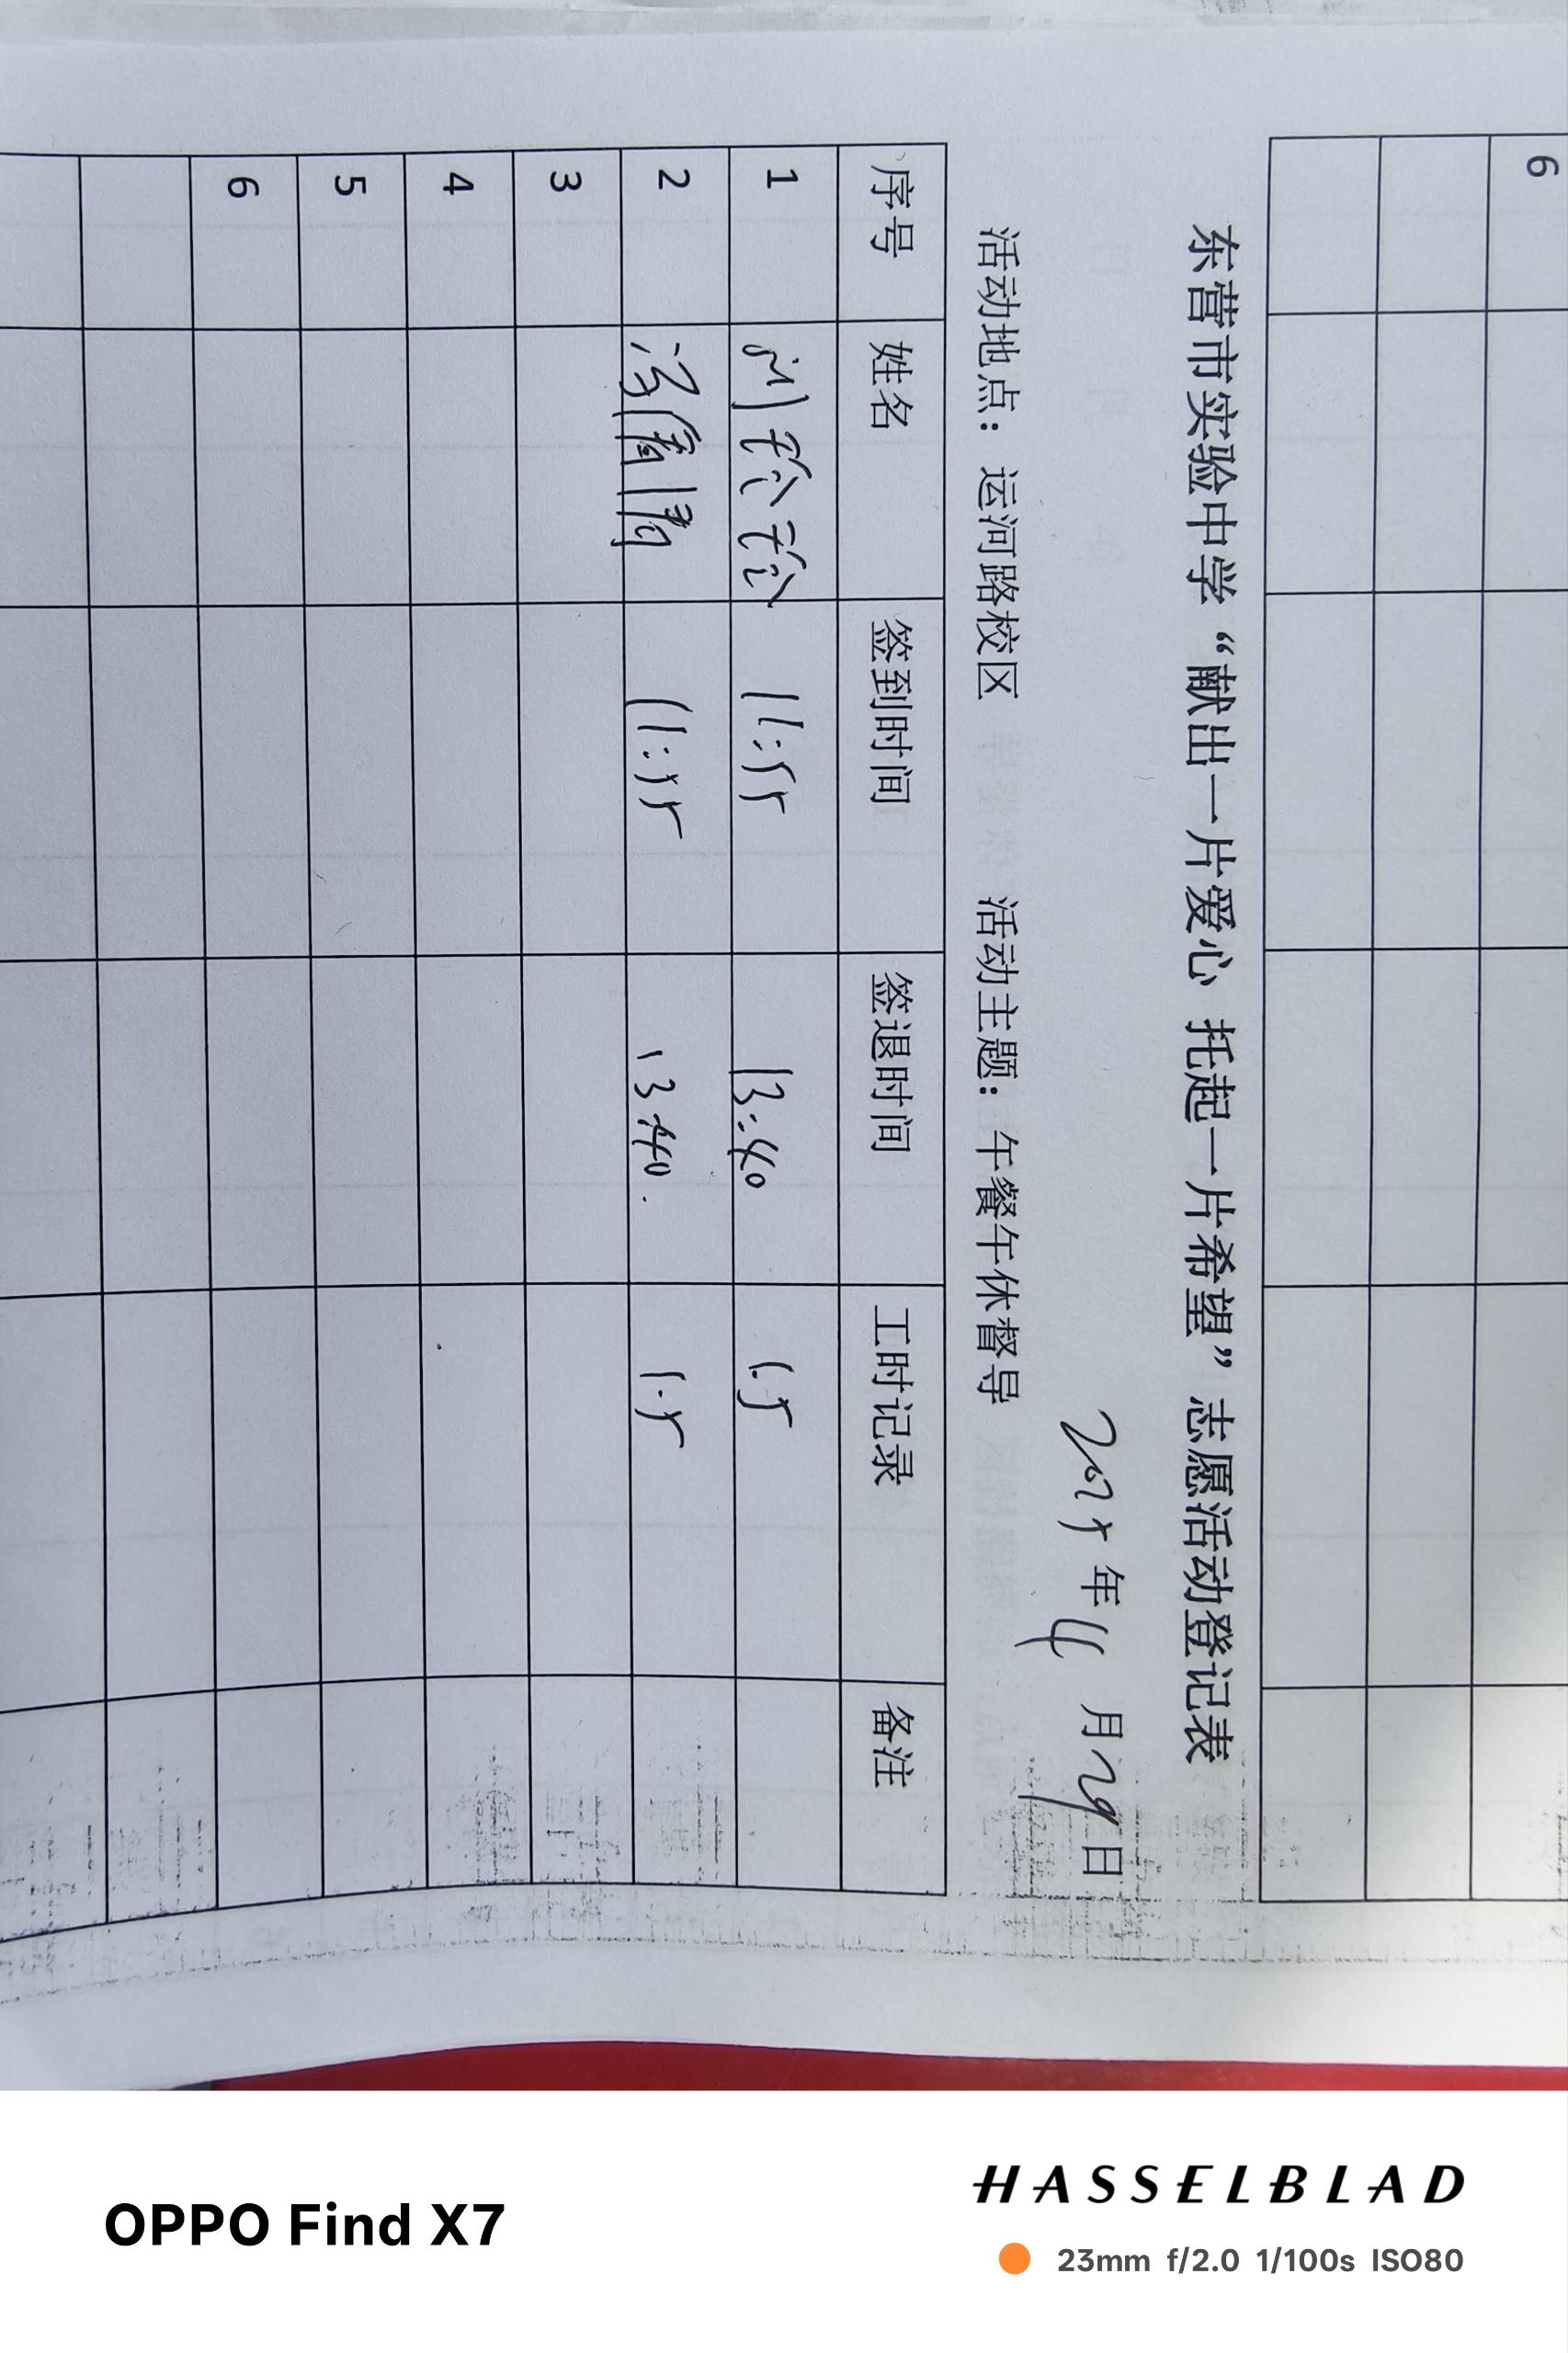 6
东营市实验中学“献出一片爱心 托起一片希望”志愿活动登记表
2025年4月29日
活动地点：运河路校区 活动主题：午餐午休督导
序号 姓名 签到时间 签退时间 工时记录 备注
1 刘玲玲 11:55 13:40 1.5
2 冯倩倩 11:55 13:40. 1.5
3
4
5
6
OPPO Find X7
HASSELBLAD
23mm f/2.0 1/100s ISO80